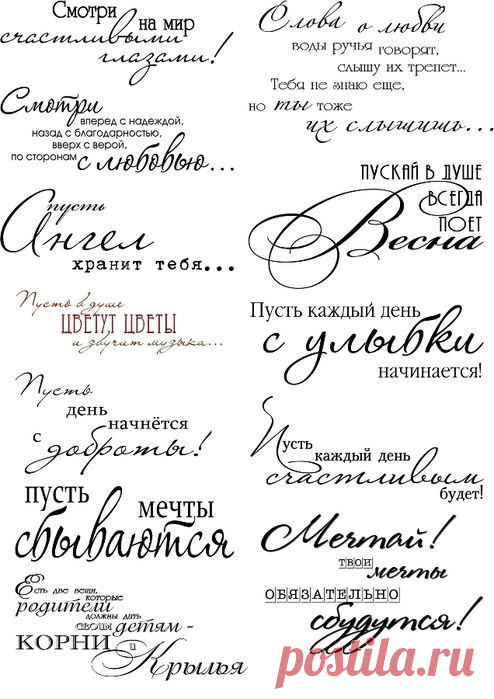 Смотри на мир
счастливыми
глазами!
Слова о любви
воды ручья говорят,
слышу их трепет...
Тебя не знаю еще,
но ты тоже
их слышишь...
Смотри
вперед с надеждой,
назад с благодарностью,
вверх с верой,
по сторонам
с любовью...
пусть
Ангел
хранит тебя...
ПУСКАЙ В ДУШЕ
ВСЕГДА
ПОЕТ
Весна
Пусть в душе
ЦВЕТУТ ЦВЕТЫ
и звучит музыка...
Пусть каждый день
с улыбки
начинается!
Пусть
день
начнётся
с доброты!
Пусть
каждый день
счастливым
будет!
пусть
мечты
сбываются
Мечтай!
твои
мечты
ОБЯЗАТЕЛЬНО
сбудутся!
Есть две вещи,
которые
родители
должны дать
своим детям -
КОРНИ и
Крылья
postila.ru